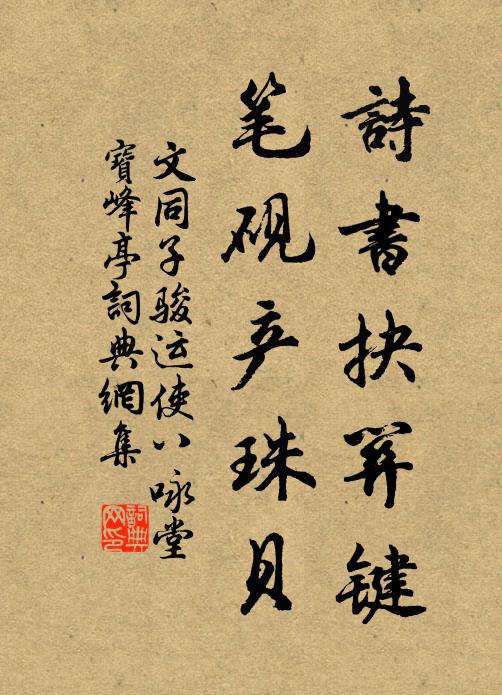 詩書抉関键
笔砚产珠贝
文同子骏运使八咏堂
寶峰亭詞典網集
詞典
网印